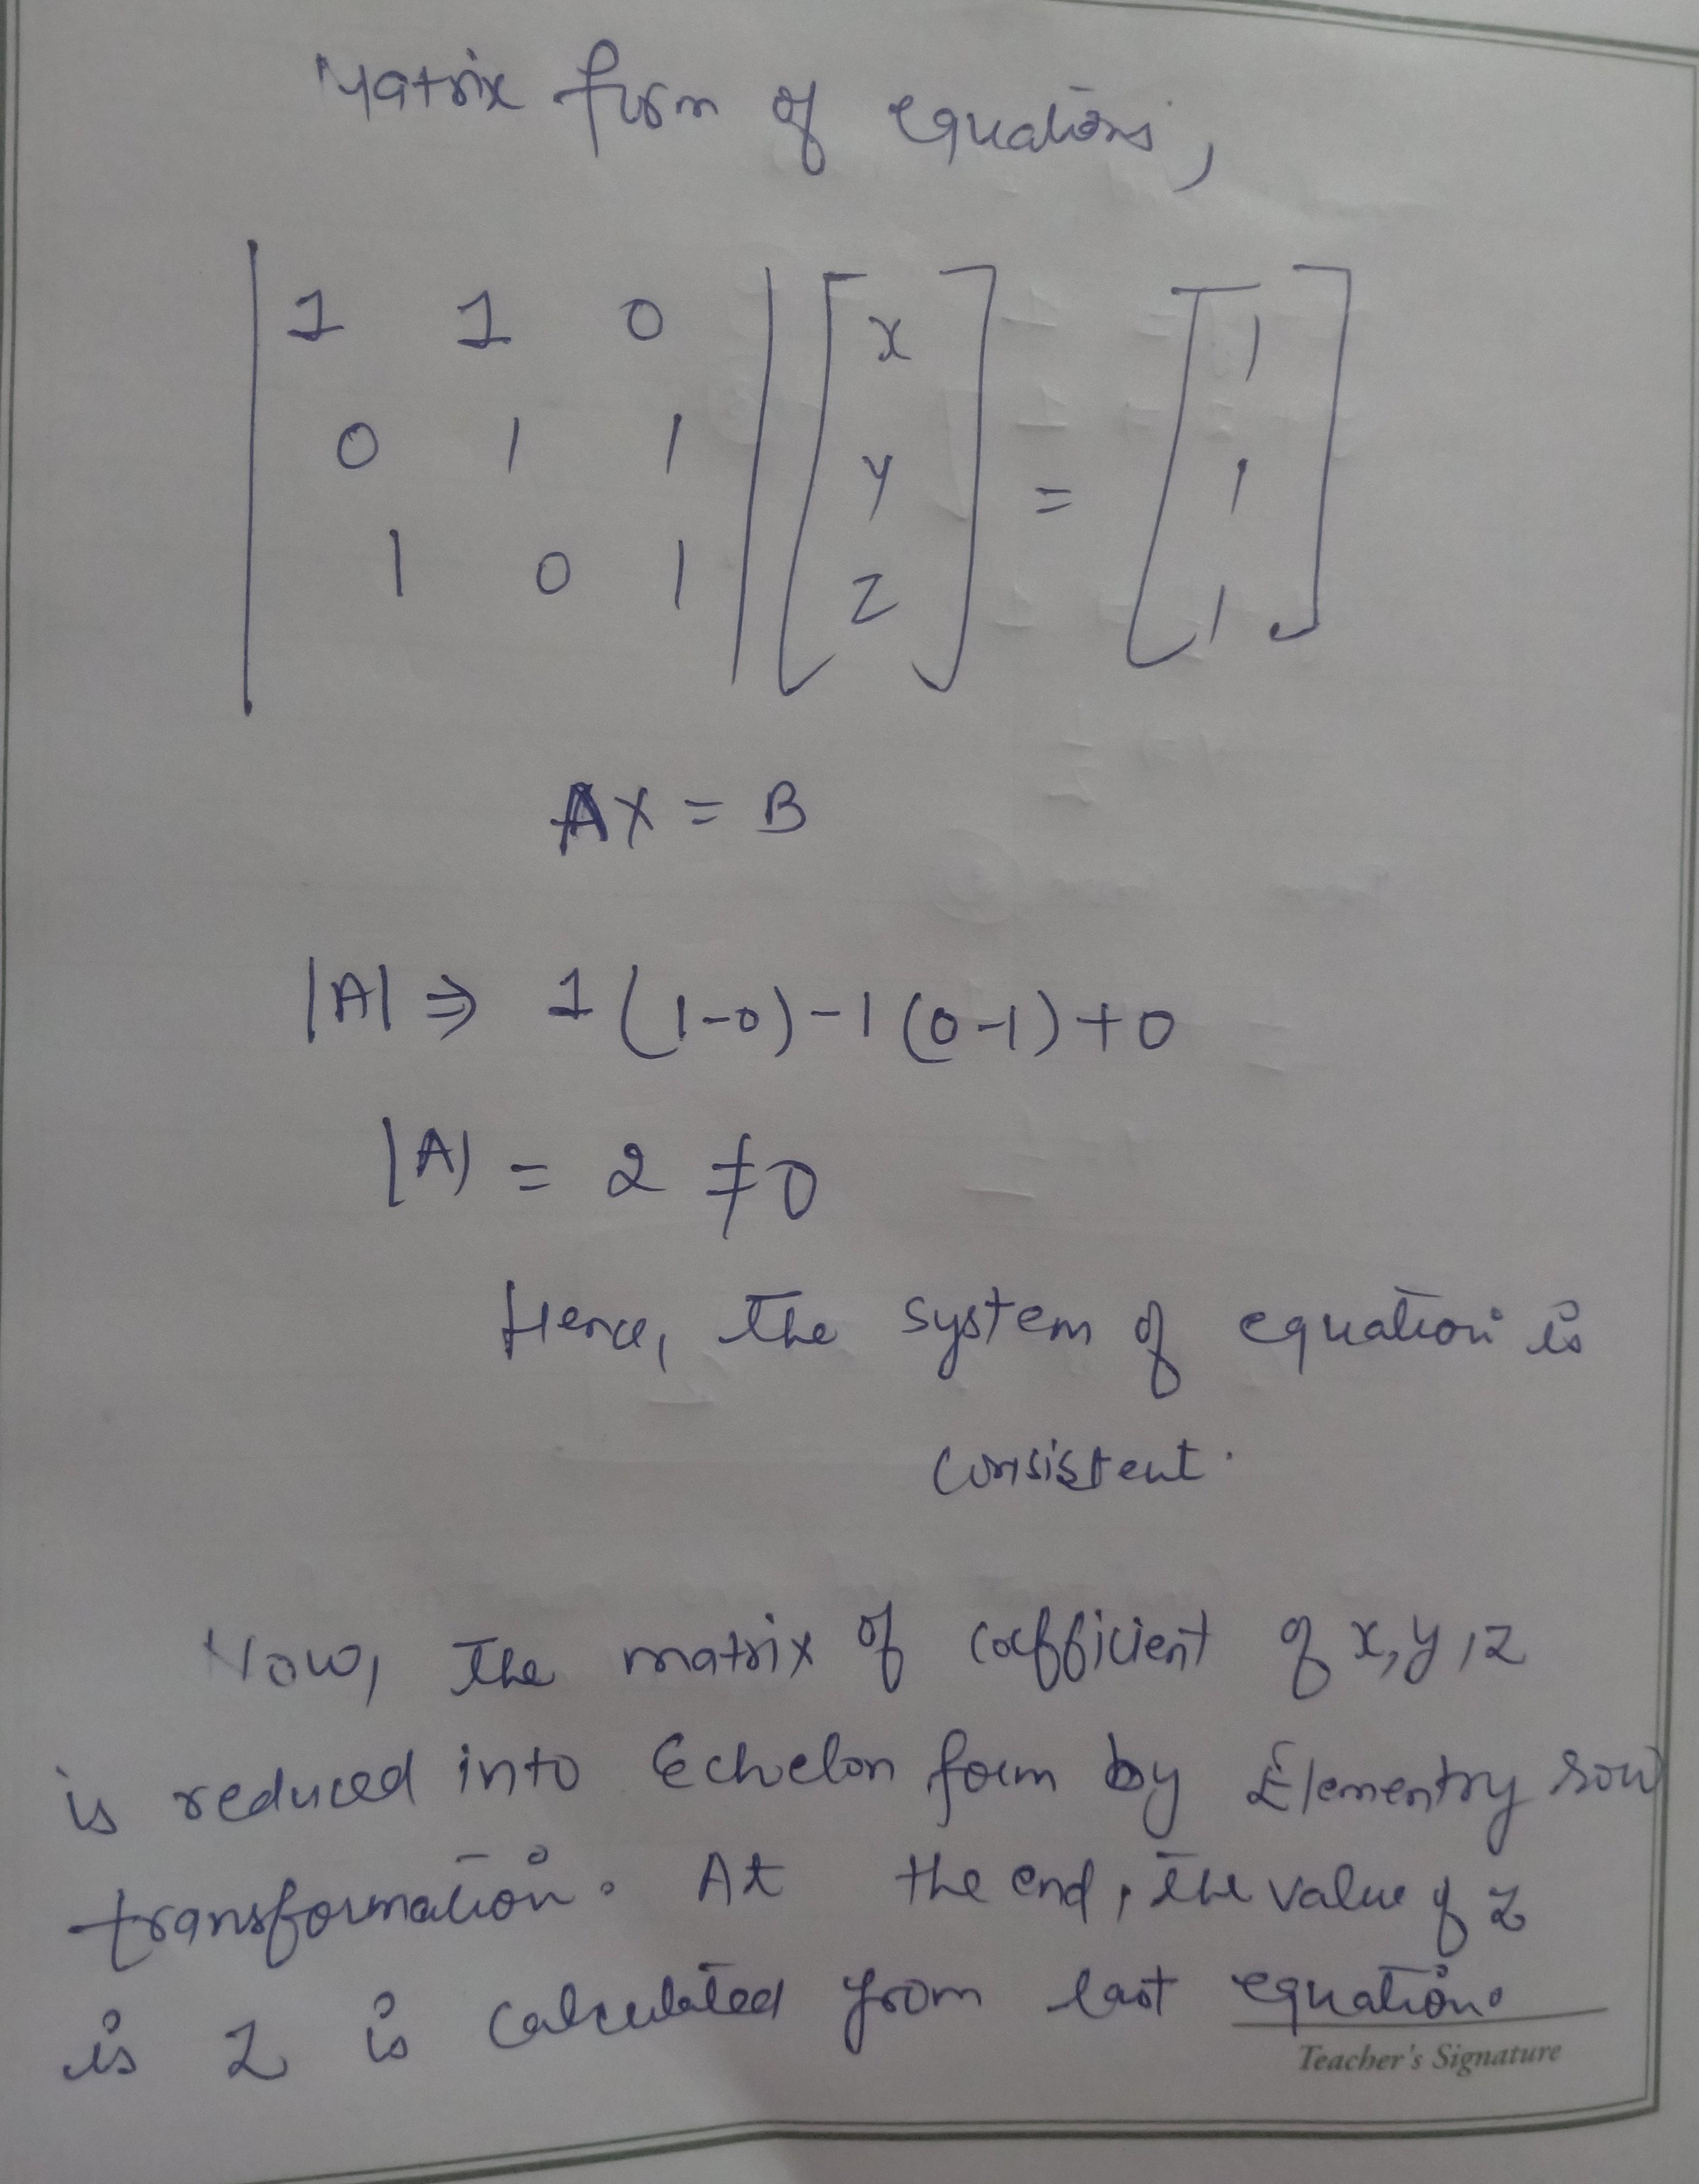 Matrix form of equations,
| 1 1 0 | [ x ] [ 1 ]
| 0 1 1 | [ y ] = [ 1 ]
| 1 0 1 | [ z ] [ 1 ]
AX = B
|A| ⇒ 1(1-0)-1(0-1)+0
|A| = 2 ≠0
Hence, the system of equation is
consistent.
Now, the matrix of coefficient of x, y, z
is reduced into Echelon form by Elementry row
transformation. At the end, the value of z
is z is calculated from last equation.
Teacher's Signature